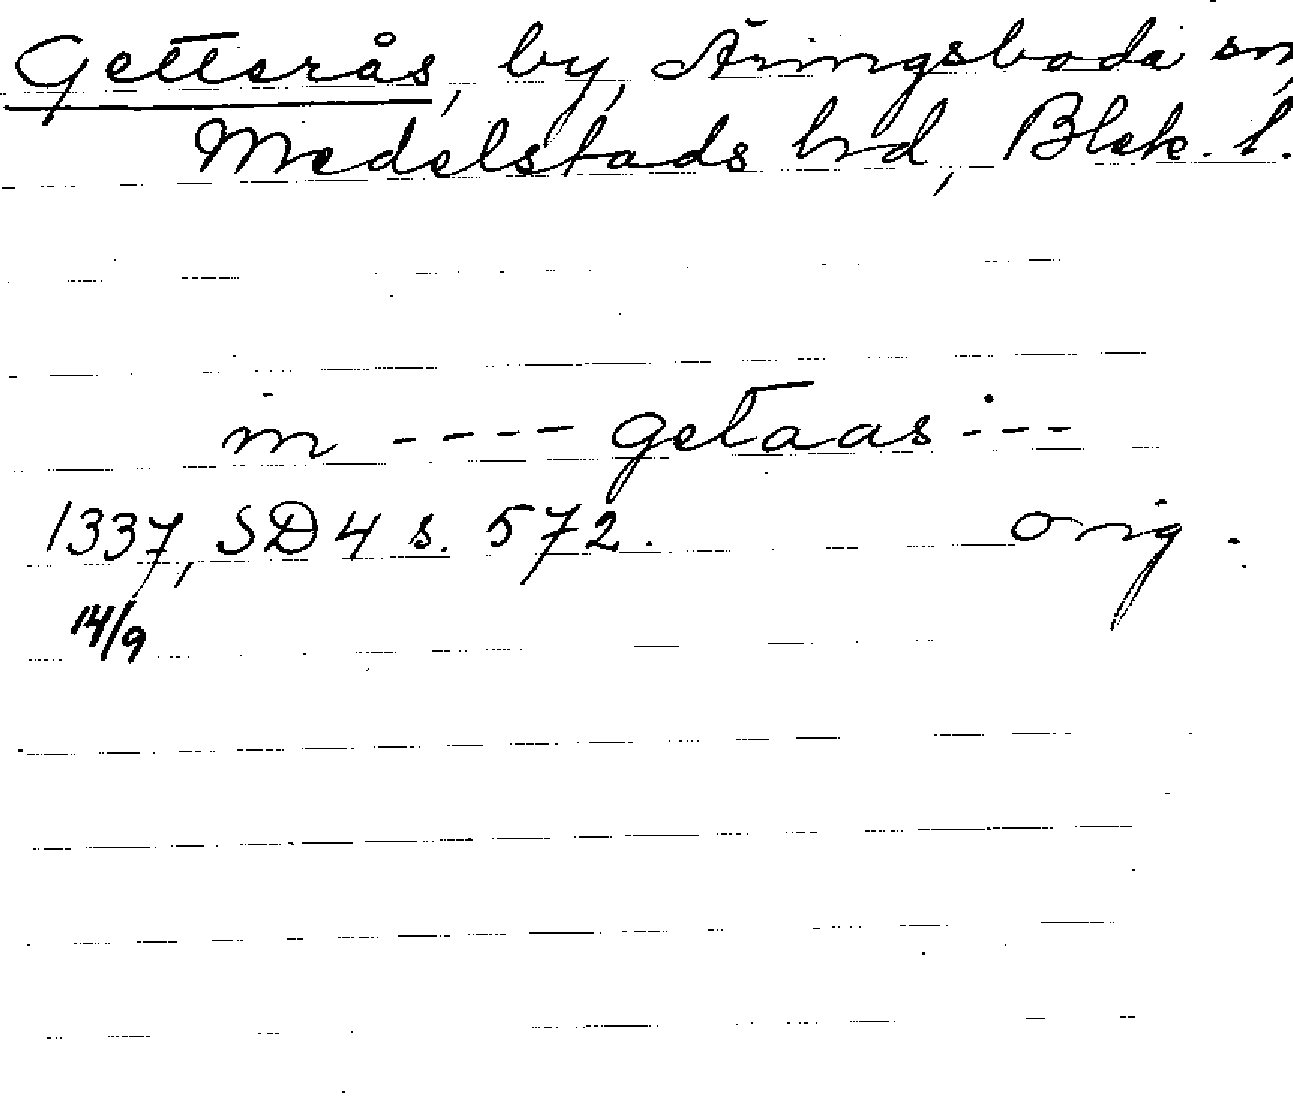 Getterås, by, Åringsboda sn,
Medelstads hd, Blek. l.
in ---- getaas ---
1337, SD 4 s. 572. orig.
14/9